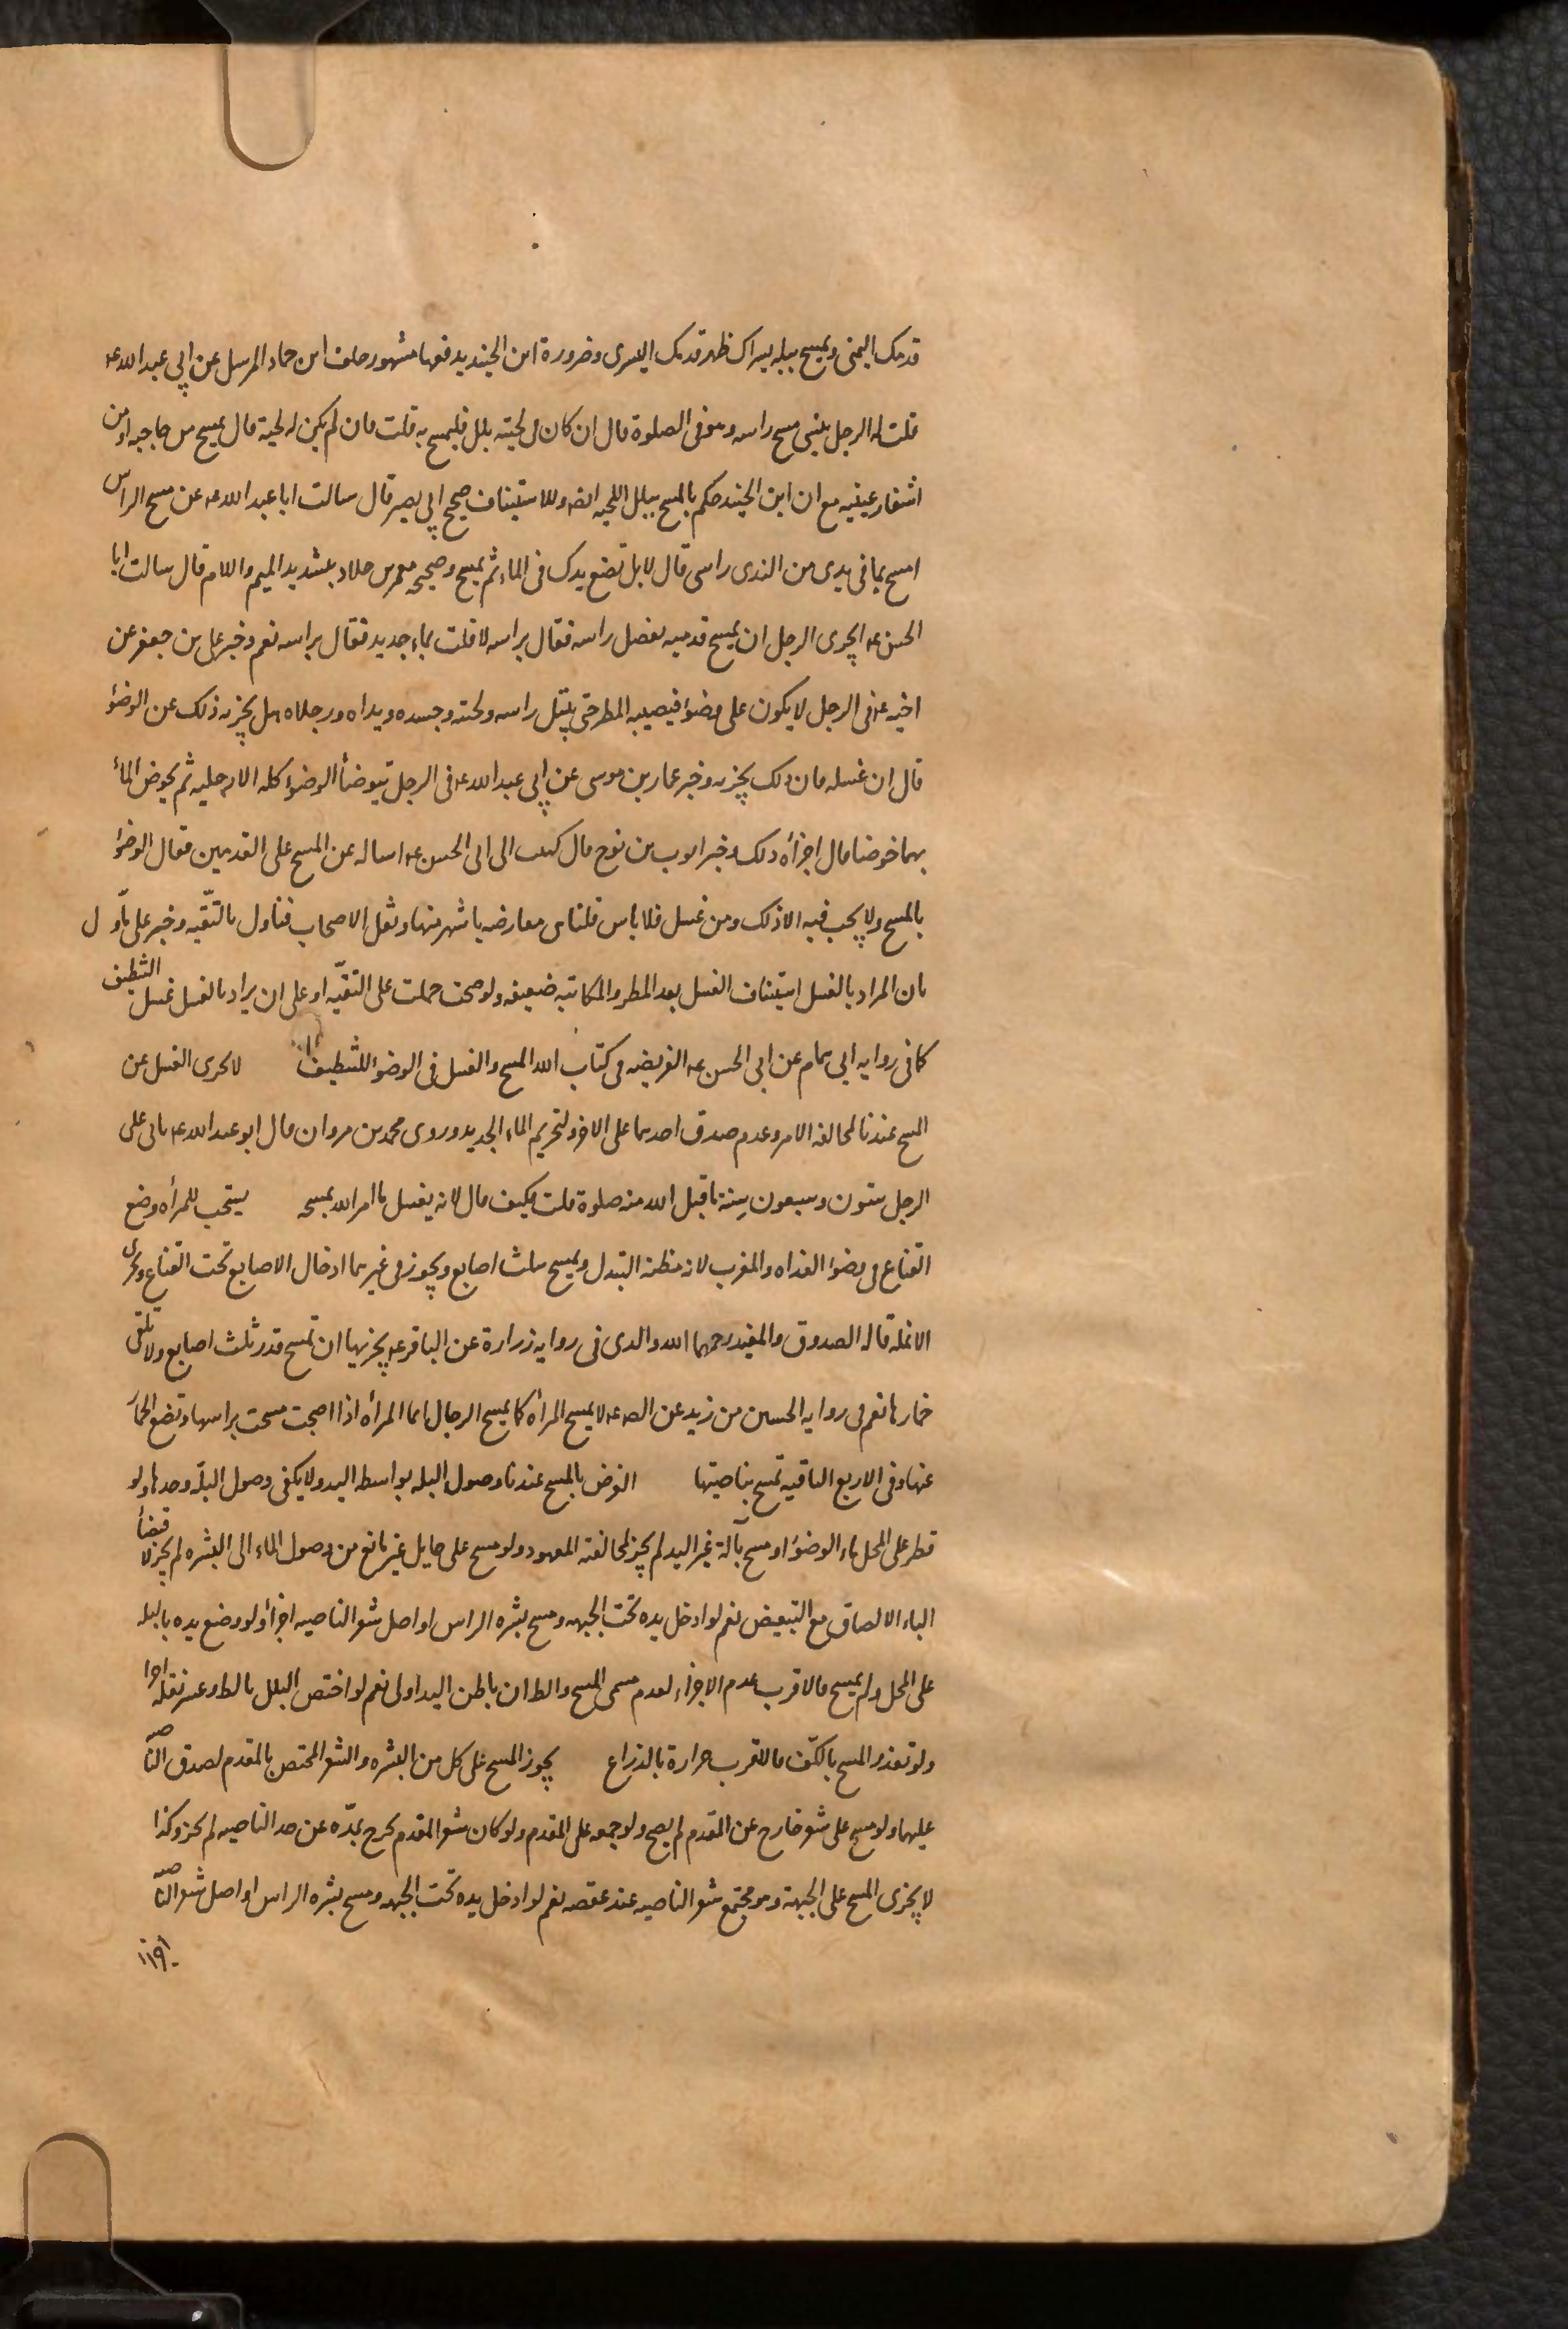 قدمك اليمنى ويمسح ببله يسراك ظهر قدمك اليسرى وضرورة ابن الجنيد يدفعها مشهور خلف ابن حماد المرسل عن ابي عبد الله عه
قلت له الرجل ينسى مسح راسه وهو فى الصلوة قال ان كان فى لحيته بلل فليمسح به قلت فان لم يكن له لحية قال يمسح من حاجبيه او من
اشفار عينيه مع ان ابن الجنيد حكم بالمسح ببلل اللحيه ايضا وللاستيناف صحيح ابي بصير قال سالت ابا عبد الله عه عن مسح الراس
امسح بما فى يدى من الندى راسى قال لا بل تضع يدك فى الماء ثم يمسح وصحيحه معمر بن خلاد بتشديد الميم واللام قال سالت ابا
الحسن عه ايجزى الرجل ان يمسح قدميه بفضل راسه فقال براسه لا فقلت بماء جديد فقال براسه نعم وخبر على بن جعفر عن
اخيه عه فى الرجل لا يكون على وضوء فيصيبه المطر حتى يبتل راسه ولحيته وجسده ويداه ورجلاه هل يجزيه ذلك عن الوضوء
قال ان غسله فان ذلك يجزيه وخبر عمار بن موسى عن ابي عبد الله عه فى الرجل يتوضأ الوضوء كله الا رجليه ثم يخوض الماء
بهما خوضا قال اجزأه ذلك وخبر ايوب بن نوح قال كتبت الى ابى الحسن عه اساله عن المسح على القدمين فقال الوضوء
بالمسح ولا يجب فيه الا ذلك ومن غسل فلا باس قلنا معارضه باشهر منها وبنقل الاصحاب فتاول بالتقيه وخبر على تأول
بان المراد بالغسل استيناف الغسل بعد المطر والمكاتبه ضعيفه ولو صحت حملت على التقيه او على ان يراد بالغسل غسل التنظيف
كما فى روايه ابى همام عن ابى الحسن عه الفريضه فى كتاب الله المسح والغسل فى الوضوء للتنظيف لا يجزى الغسل عن
المسح عندنا لمخالفه الامر وعدم صدق احدهما على الاخر ولتحريم الماء الجديد وروى محمد بن مروان قال ابو عبد الله عه ياتى على
الرجل ستون وسبعون سنة ما قبل الله منه صلوة قلت فكيف قال لانه يغسل ما امر الله بمسحه يستحب للمرأه وضع
القناع فى وضوء الغداه والمغرب لانه مظنه التبدل ويمسح بثلث اصابع ويجوز فى غيرهما ادخال الاصابع تحت القناع ويجزى
الانمله قاله الصدوق والمفيد رحمهما الله والذى فى روايه زرارة عن الباقر عه يجزيها ان تمسح قدر ثلث اصابع ولا تلقى
خمارها نعم فى روايه الحسين بن زيد عن الصه عه لا يمسح المرأه كما يمسح الرجال انما المرأه اذا اصبحت مسحت براسها وتضع الخمار
عنها وفى الاربع الباقيه تمسح بناصيتها الفرض بالمسح عندنا وصول البله بواسطه اليد ولا يكفى وصول البله وحدها ولو
قطر على المحل ماء الوضوء او مسح بآلة غير اليد لم يجز لمخالفته المعهود ولو مسح على حايل غير مانع من وصول الماء الى البشره لم يجز لاقتضاء
الباء الالصاق مع التبعيض نعم لو ادخل يده تحت الجبهه ومسح بشره الراس او اصل شعر الناصيه اجزأ ولو وضع يده بالبله
على المحل ولم يمسح فالاقرب عدم الاجزاء لعدم مسمى المسح والظ ان باطن اليد اولى نعم لو اختص البلل بالظهر وعسر نقله اجزا
ولو تعذر المسح بالكف فالاقرب جوازه بالذراع يجوز المسح على كل من البشره والشعر المختص بالمقدم لصدق الناصيه
عليهما ولو مسح على شعر خارج عن المقدم لم يصح ولو جمعه على المقدم ولو كان شعر المقدم يخرج بمده عن حد الناصيه لم يجز وكذا
لا يجزى المسح على الجبهة وهو مجتمع شعر الناصيه عند عقصه نعم لو ادخل يده تحت الجبهه ومسح بشره الراس او اصل شعر الناصيه
اجزأ